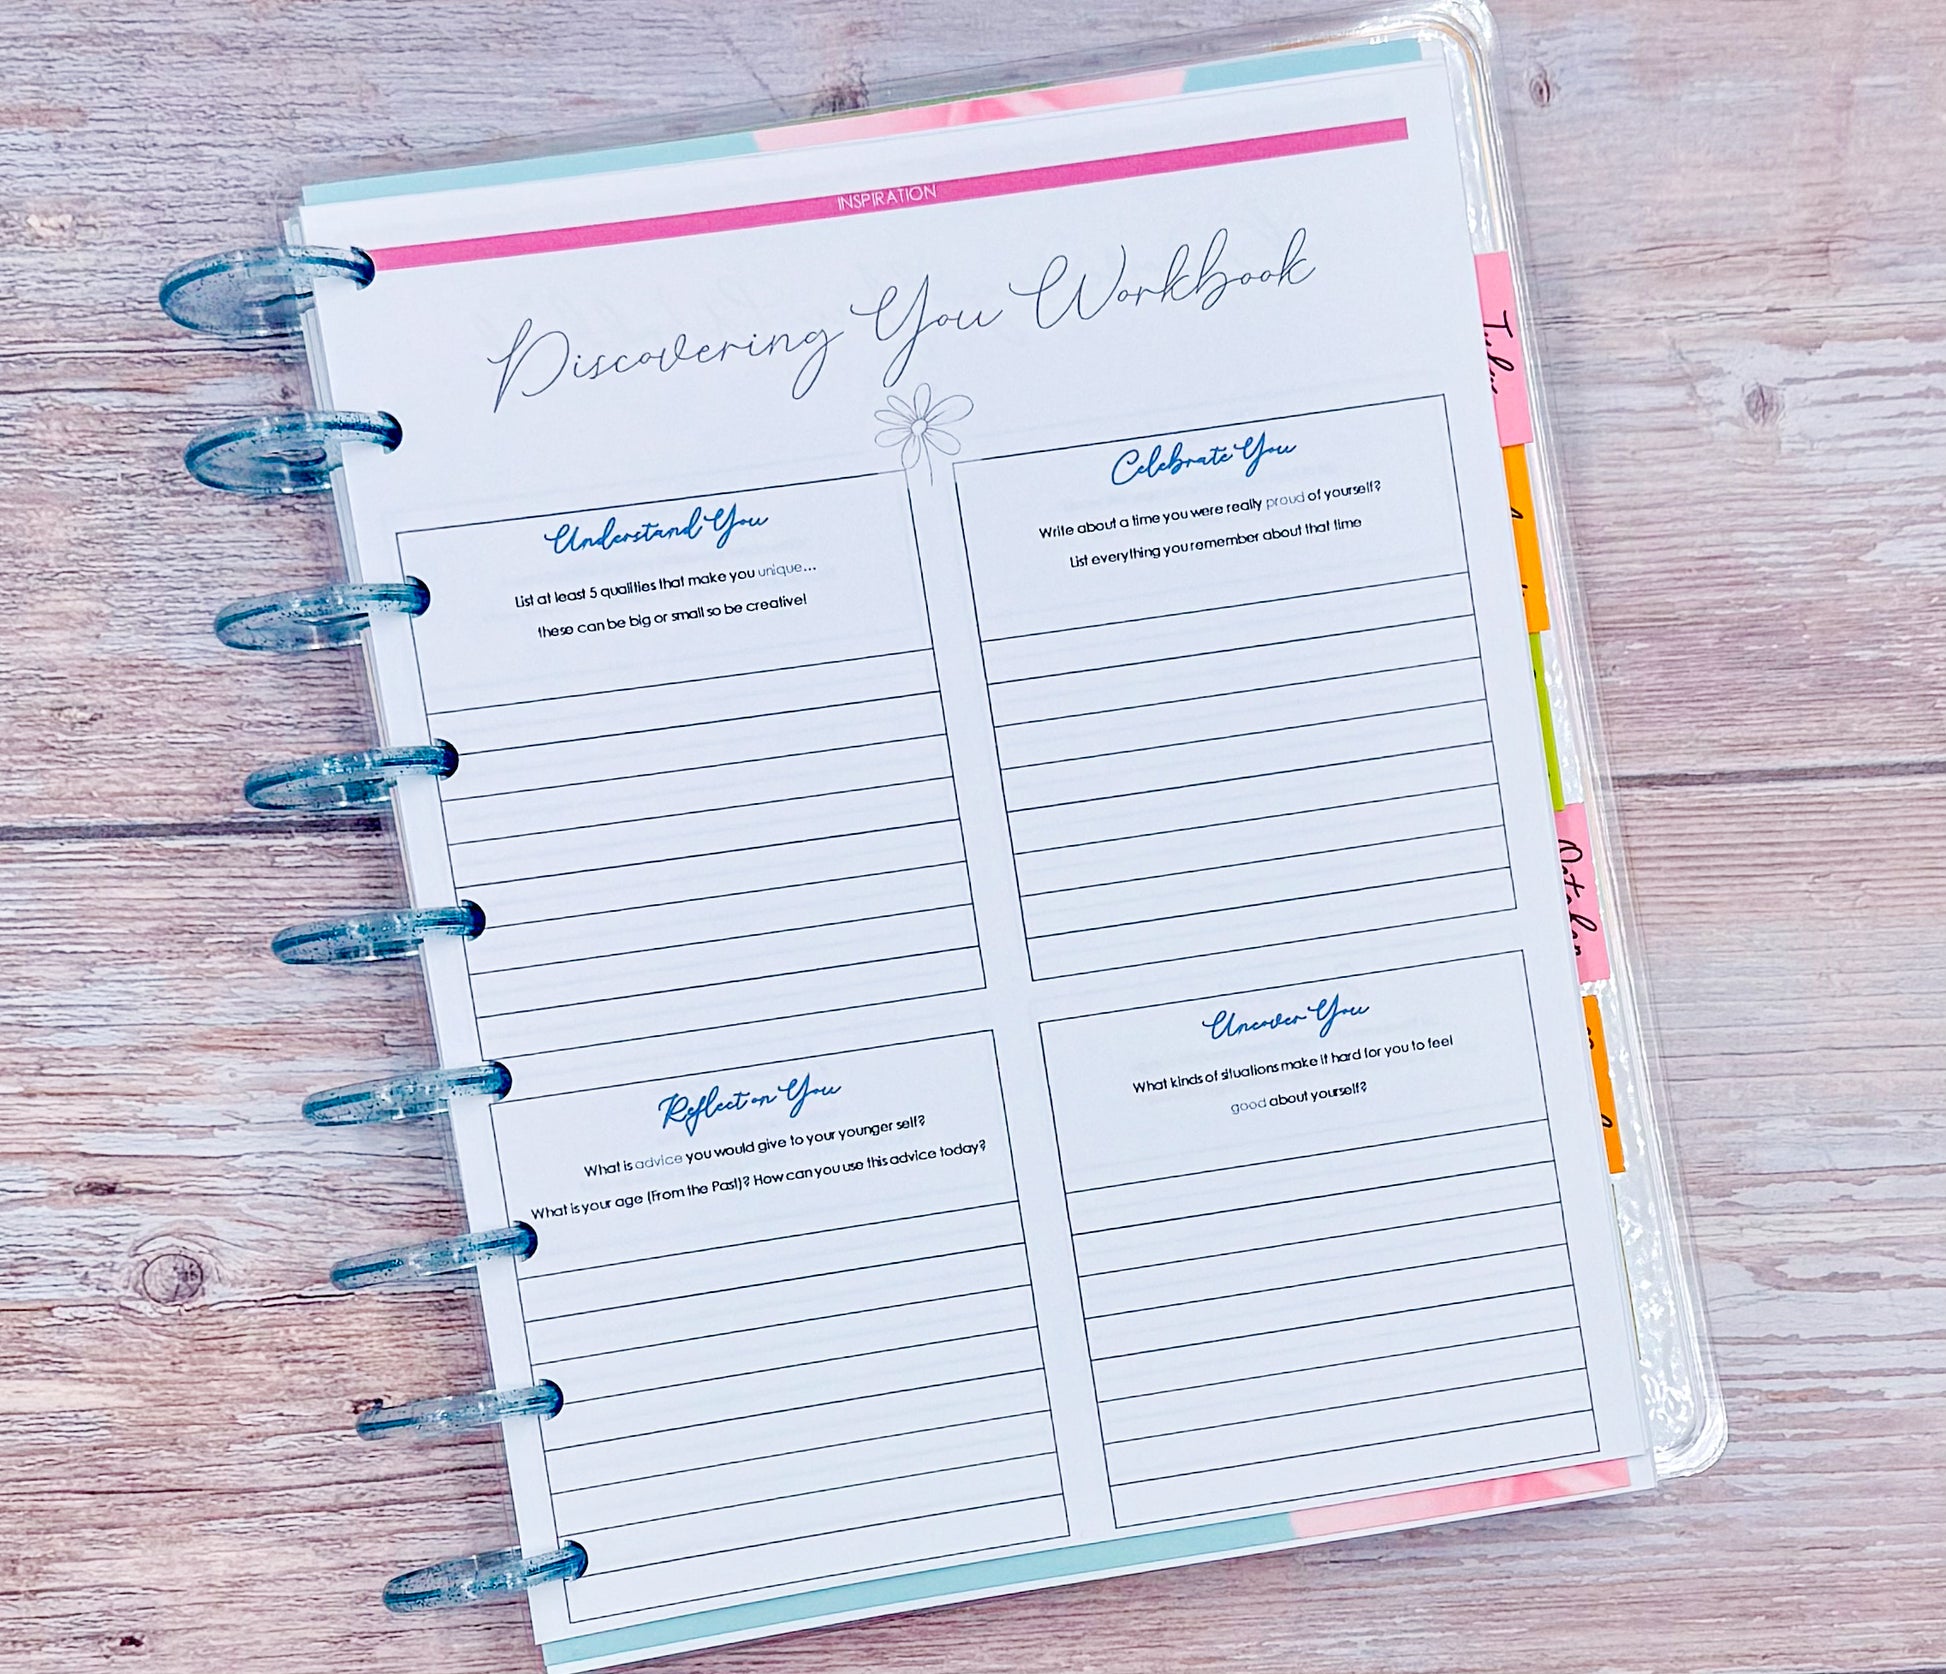 INSPIRATION
Discovering You Workbook
Understand You
List at least 5 qualities that make you unique...
these can be big or small so be creative!
Celebrate You
Write about a time you were really proud of yourself?
List everything you remember about that time
Reflect on You
What is advice you would give to your younger self?
What is your age (From the Past)? How can you use this advice today?
Uncover You
What kinds of situations make it hard for you to feel
good about yourself?
July
October